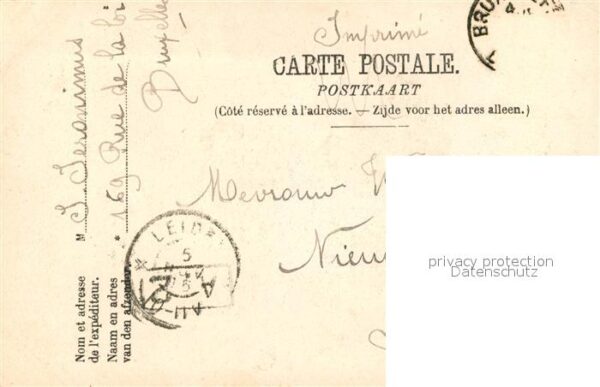 Imprimé
CARTE POSTALE.
POSTKAART
(Côté réservé à l'adresse. — Zijde voor het adres alleen.)
BRU
4
Mevrouw
Nieu
privacy protection
Datenschutz
LEID
5
Nom et adresse
de l'expéditeur.
Naam en adres
van den afzender.
M J. Jeronimus
169 Rue de la loi
Bruxelles